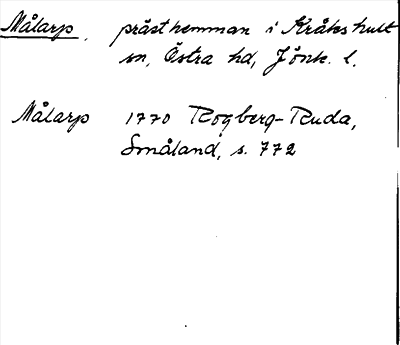 Målarp. prästhemman i Kråkshult
sn, Östra hd, Jönk. l.
Målarp 1770 Rogberg-Ruda,
Småland, s. 772